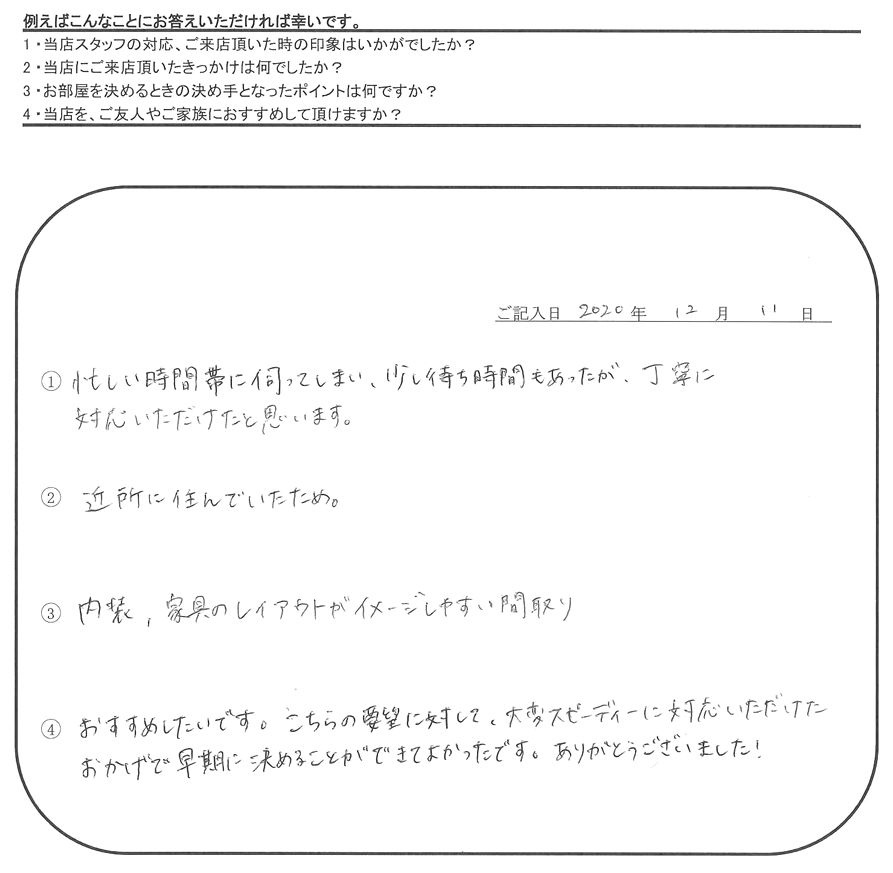 例えばこんなことにお答えいただければ幸いです。
1・当店スタッフの対応、ご来店頂いた時の印象はいかがでしたか？
2・当店にご来店頂いたきっかけは何でしたか？
3・お部屋を決めるときの決め手となったポイントは何ですか？
4・当店を、ご友人やご家族におすすめして頂けますか？
ご記入日 2020年 12月 11日
① 忙しい時間帯に伺ってしまい、少し待ち時間もあったが、丁寧に
対応いただけたと思います。
② 近所に住んでいたため。
③ 内装，家具のレイアウトがイメージしやすい間取り
④ おすすめしたいです。こちらの要望に対して、大変スピーディーに対応いただけた
おかげで早期に決めることができてよかったです。ありがとうございました!